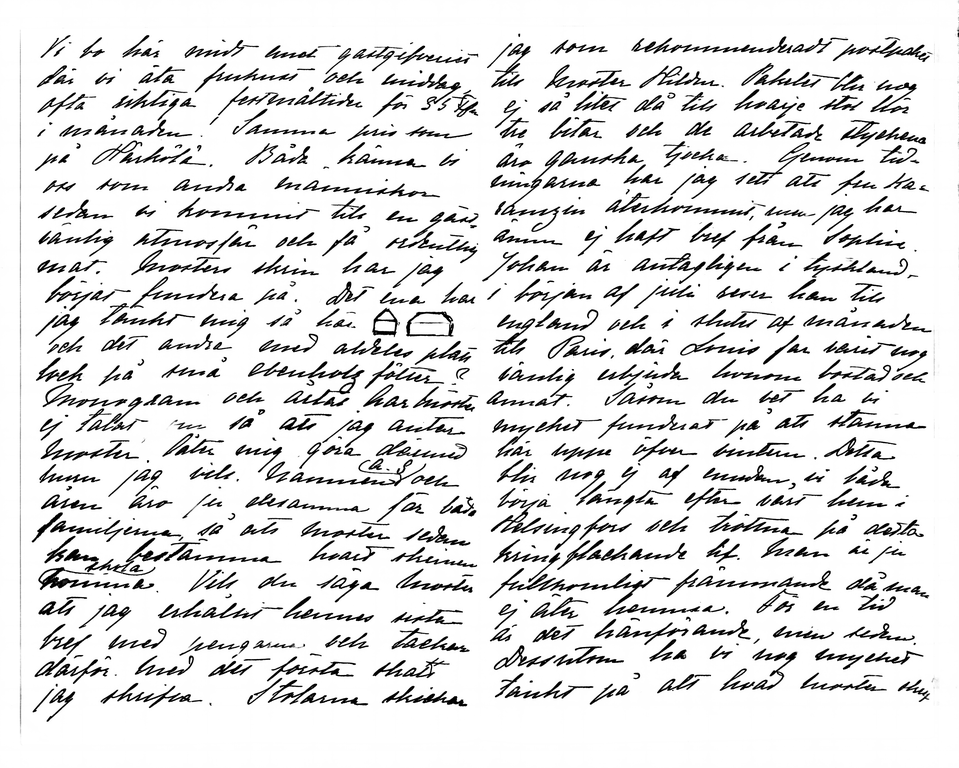 Vi bo här midt emot gästgifveriet
där vi äta frukost och middag
ofta riktiga festmåltider för 85 fm
i månaden. Samma pris som
på Härkölä. Båda känna vi
oss som andra människor
sedan vi kommit till en gäst-
vänlig atmosfär och få ordentlig
mat. Mosters skrin har jag
börjat fundera på. Det ena har
jag tänkt mig så här
och det andra med aldeles platt
lock på små ebenholz fötter?
Monogram och årtal har moster
ej talat om så att jag antar
Moster låter mig göra därmed
hurn jag vill. Namnen (a. g) och
åren äro ju desamma för båda
familjerna, så att moster sedan
kan bestämma hvart skrinen
skola
komma. Vill du säga Moster
att jag erhållit hennes sista
bref med pengarna och tackar
därför. Med det första skall
jag skrifva. Stolarna skickar
jag som rekommenderadt postpaket
till Moster Hilda. Paketet blir nog
ej så litet då till hvarje stol hör
tre bitar och de arbetade styckena
äro ganska tjocka. Genom tid-
ningarna har jag sett att fru Ka-
ramzin återkommit, men jag har
ännu ej haft bref från Sophie.
Johan är antagligen i tyskland,
i början af juli reser han till
england och i slutet af månaden
till Paris, där Louis har varit nog
vänlig erbjuda honom bostad och
annat. Såsom du vet ha vi
mycket funderat på att stanna
här uppe öfver vintern. Detta
blir nog ej af emedan vi båda
börja längta efter vårt hem i
Helsingfors och tröttna på detta
kringflackande lif. Man är ju
fullkomligt främmande då man
ej äter hemma. För en tid
är det hänförande, men sedan.
Dessutom ha vi nog mycket
tänkt på allt hvad moster skref